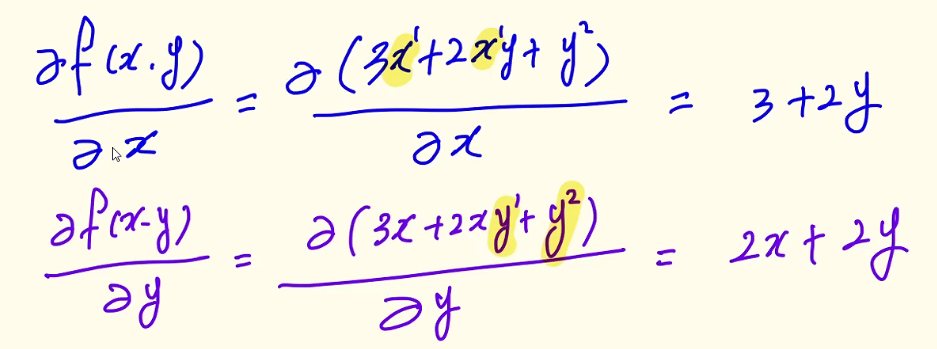 ∂f(x.y)/∂x = ∂(3x¹+2x¹y+y²)/∂x = 3+2y
∂f(x-y)/∂y = ∂(3x+2xy¹+y²)/∂y = 2x+2y